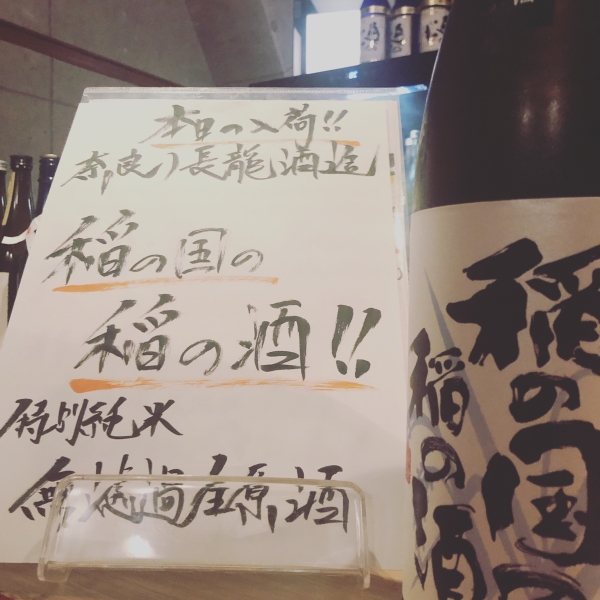 本日の入荷!!
奈良ノ長龍酒造
稲の国の
稲の酒!!
特別純米
無濾過生原酒
稲の国の
稲の酒